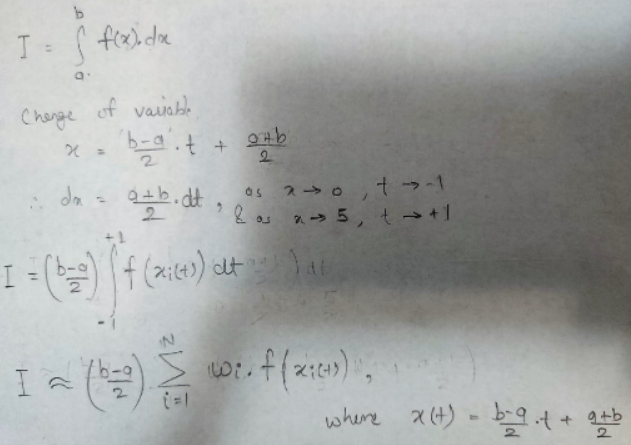 I = ∫_a^b f(x).dx
Change of variable
x = (b-a)/2 .t + (a+b)/2
∴ dx = (a+b)/2 .dt , as x → 0 , t → -1
& as x → 5 , t → +1
I = ((b-a)/2) ∫_{-1}^{+1} f(x_i(t)) dt
I ≈ ((b-a)/2) . Σ_{i=1}^{N} w_i . f(x_i(t)) ,
where x(t) = (b-a)/2 .t + (a+b)/2